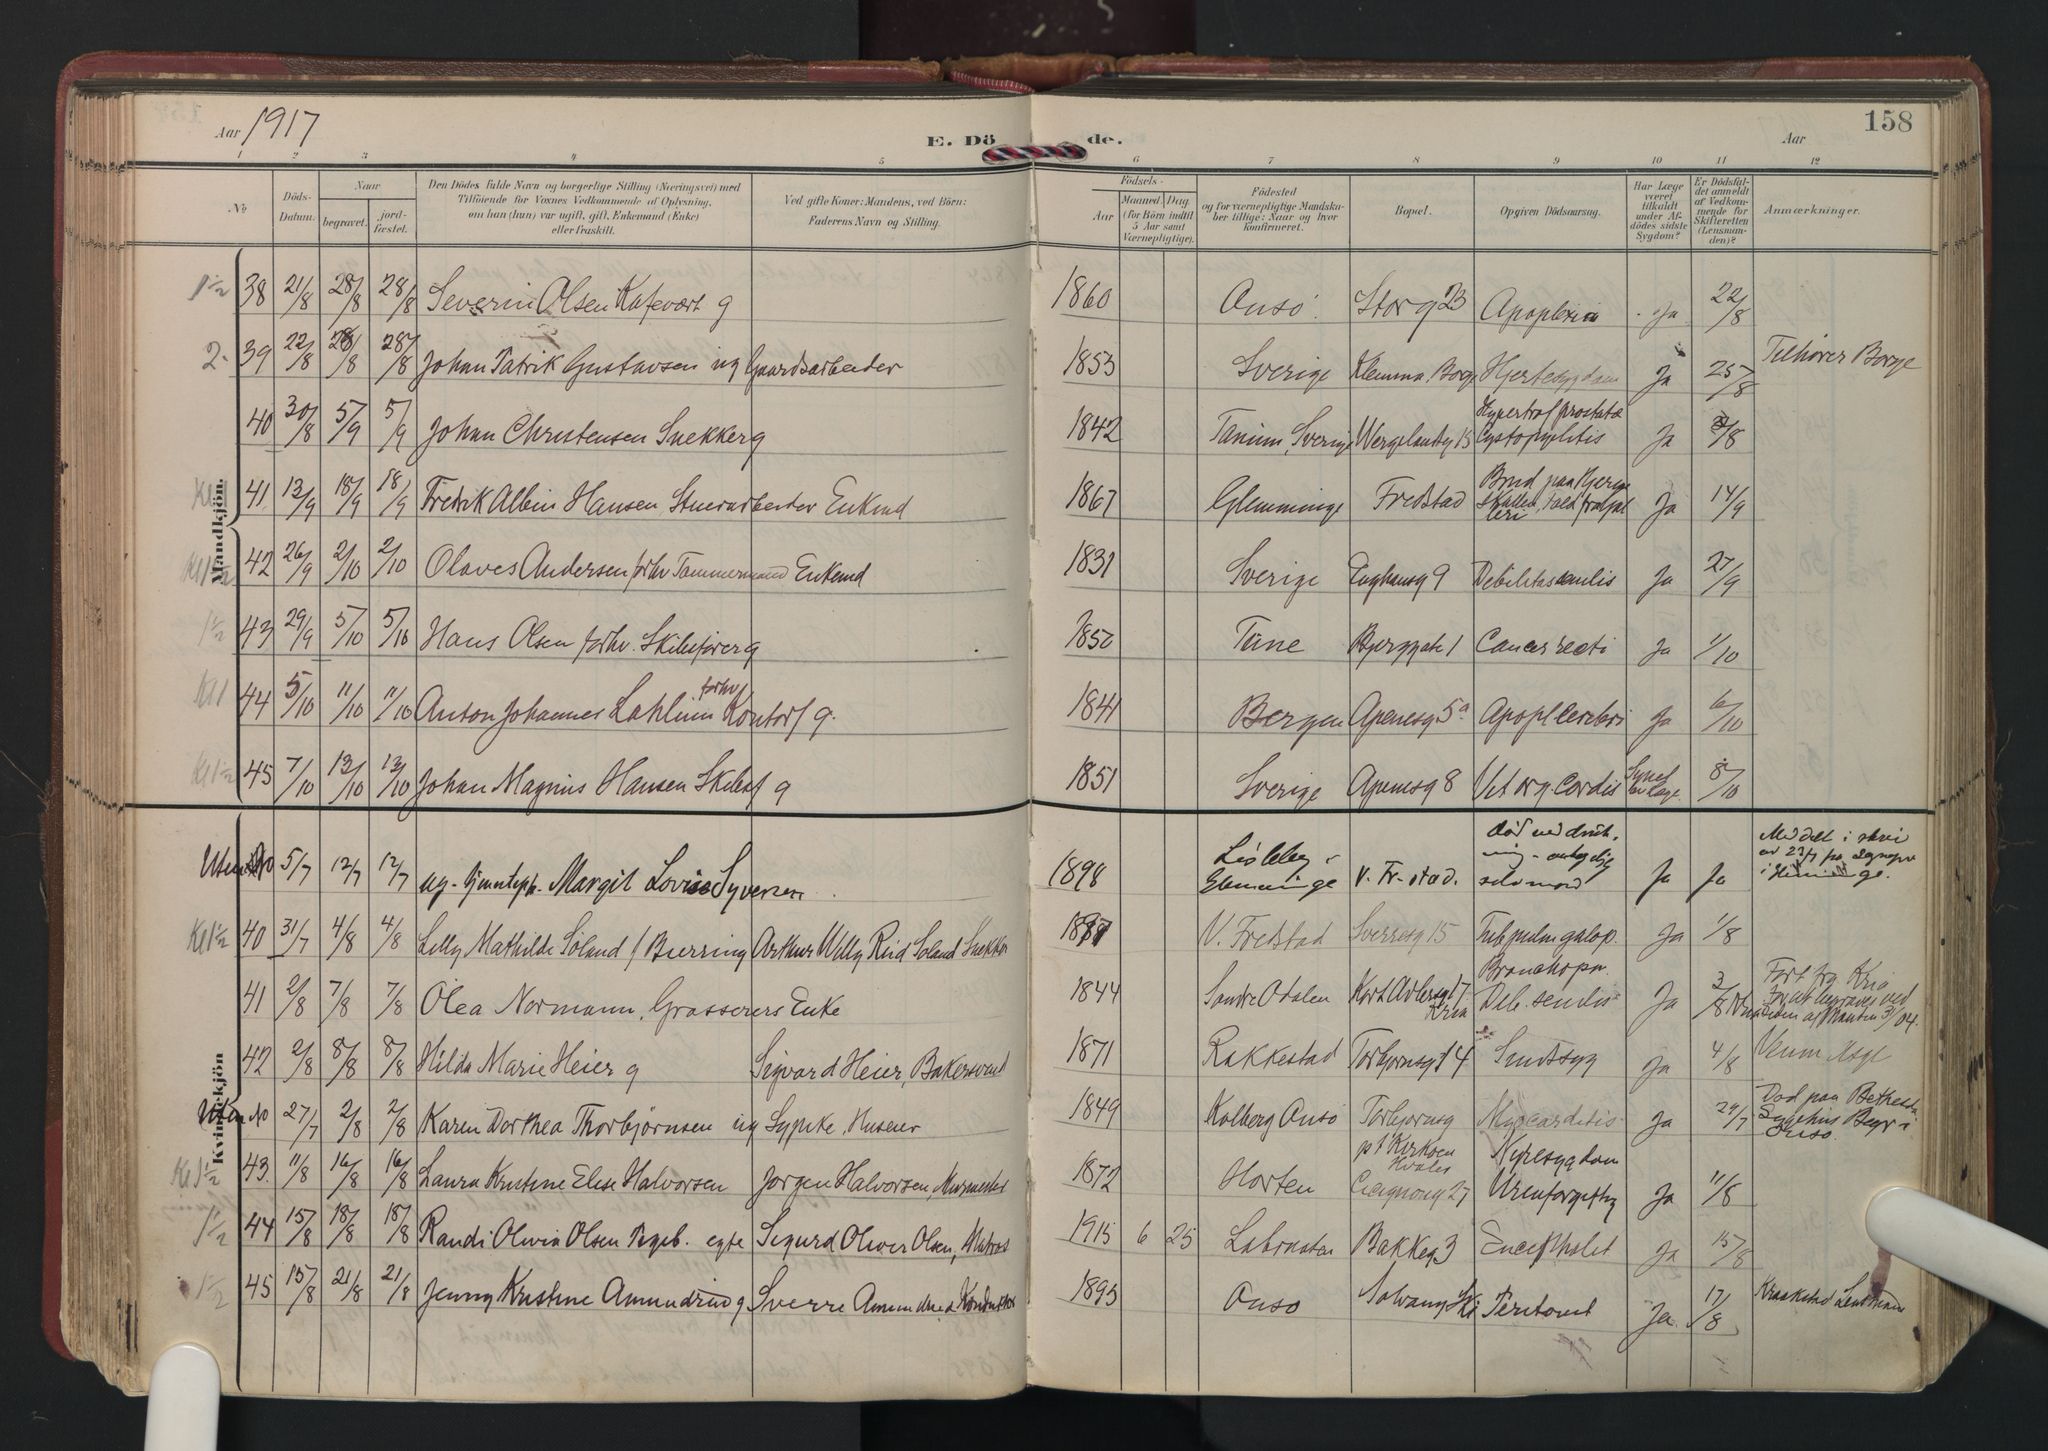 158
Aar 1917
E. Dö de.
Aar
1 2 3 4 5 6 7 8 9 10 11 12
No
Döds-Datum.
Naar
begravet.
jord-fæstet.
Den Dödes fulde Navn og borgerlige Stilling (Næringsvei) med
Tilföiende for Voxnes Vedkommende af Oplysning,
om han (hun) var ugift, gift, Enkemand (Enke)
eller fraskilt.
Ved gifte Koner: Mandens, ved Börn:
Faderens Navn og Stilling.
Födsels-
Aar
Maaned
(for Börn indtil
5 Aar samt
Værnepligtige).
Dag
Födested
og for værnepligtige Mandska-
ber tillige: Naar og hvor
konfirmeret.
Bopæl.
Opgiven Dödsaarsag.
Har Læge
været
tilkaldt
under Af-
dödes sidste
Sygdom?
Er Dödsfal-
det anmeldt
af Vedkom-
mende for
Skifteretten
(Lensman-
den)?
Anmærkninger.
Mandkjön.
1½ 38 21/8 28/8 28/8 Severin Olsen Kafevært g 1860 Onsö Storg 23 Apoplexia Ja 22/8
2. 39 22/8 28/8 28/8 Johan Patrik Gustavsen ug Gaardsarbeider 1853 Sverige Klemma, Borge Hjertesygdom Ja 25/8 Tilhører Borge
40 30/8 5/9 5/9 Johan Christensen Snekker g 1842 Tanum, Sverige Wergelandsg 15 Hypertrof prostatæ Ja
41 13/9 18/9 18/9 Fredrik Albin Hansen, Stuerarbeider Enkemd 1867 Glemminge Fredstad Brud paa Hjerne Ja 14/9
Kl 1½ 42 26/9 2/10 2/10 Olaves Andersen forhv Tømmermand Enkemd 1831 Sverige Enghausg 9 Debilitas senilis Ja 27/9
1½ 43 29/9 5/10 5/10 Hans Olsen forhv. Skibsfører g 1850 Tune Bjerggate 1 Cancer recti Ja 1/10
Kl 1 44 5/10 11/10 11/10 Anton Johannes Lahlum forhv Kontorf g. 1841 Bergen Apenesg 5a Apopl cerebri Ja 6/10
Kl 1½ 45 7/10 13/10 13/10 Johan Magnus Hansen Skibsf g 1851 Sverige Apenesg 8 Vit org. Cordis Synet av Læge 8/10
Kvindekjön
Uten No 5/7 12/7 12/7 ug. Margit Lovise Syversen 1898 Lisleby i Glemminge V. Fr-stad. død ved drukning - selvmord Ja Ja Meddelt i skriv av 23/7 fra
Kl 1½ 40 31/7 4/8 4/8 Lilly Mathilde Söland f Bierring Arthur Willy Reid Söland Snekker V. Fredstad Sverresg 15 Tub pulm galop. Ja 1/8
41 2/8 7/8 7/8 Olea Normann, Grosserers Enke 1844 Søndre Odalen Kort Adlersgt 7 Kria Bronchopn. Deb. senilis Ja 3/8
42 2/8 8/8 8/8 Hilda Marie Heier g Sigvard Heier, Bakersvend 1871 Rakkestad Torbjornsgt 4 Sindssyg Ja 4/8 Veum Asyl
Uten No 27/7 2/8 2/8 Karen Dorthea Thorbjørnsen ug Sypike, Huseier 1849 Kolberg Onsö Torbjornsg Myocarditis Ja 29/7 Død paa Bethesda Sygehus Begr i Onsø.
Kl 1½ 43. 11/8 16/8 16/8 Laura Kristine Elise Halvorsen Jørgen Halvorsen, Murmester 1872 Horten Nyresygdom Urinforgiftg Ja 11/8
1½ 44 15/8 18/8 18/8 Randi Olivia Olsen Pigeb. egte Sigurd Oliver Olsen, Matros 1915 6 25 Labraaten Bakkeg 3 Encephalit Ja 15/8
1½ 45 15/8 21/8 21/8 Jenny Kristine Amundrud g Sverre Amundrud Konduktør 1895 Onsö Solvang Ski Peritonit Ja 17/8 Kraakstad Lensmand